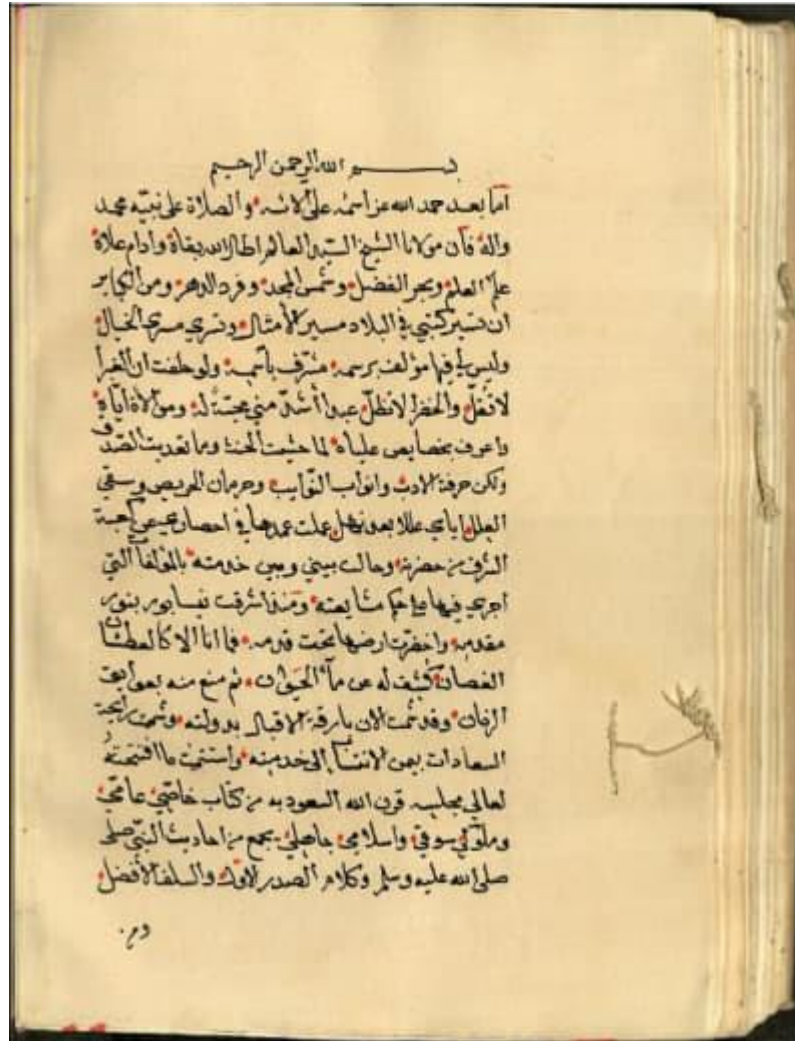 بسم الله الرحمن الرحيم
اما بعد حمد الله عز اسمه على الائه والصلاة على نبيه محمد
واله فان مولانا الشيخ السيد العالم اطال الله بقاة وادام علاة
علم العلم وبحر الفضل وشمس المجد وفرد الدهر ومن الكباير
ان تسير كتبي في البلاد مسير الأمثال وتسري مسري الخيال
وليس لي فيها مؤلف برسمه مشرف بآسمه ولو حلفت ان الغبرأ
لا تقل والخضرا لا تظل عبدا أشد مني محبة له وموالاة اياة
واعرف بخصايص علياة لما خشيت الحنث وما تعديت الصدق
ولكن حرفة الادب وانواب النوايب وحرمان الحريص وسقي
العلل اياي عللا بعد نهل عملت عملها في احصاري عن كعبة
الشرف من حضرته وحالت بيني وبين خدمته بالمؤلفات التي
اجري فيها على حكم مشايعته ومنذ اشرقت نيسابور بنور
مقدمه واخضرت ارضها تحت قدمه فما انا الا كالعطشان
الغصان كشف له عن مآء الحيوان ثم منع منه بعوايق
الزمان وقد شمت الان بارقة الاقبال بدولته وشممت رايحة
السعادات بيمن الانتسآب الى خدمته واستتممت ما افتتحته
لعالي مجلسه قرن الله السعود به من كتاب خاصي عامي
وملوكي سوقي واسلامي جاهلي يجمع من احاديث النبي صلى
صلى الله عليه وسلم وكلام الصدر الاول والسلف الأفضل